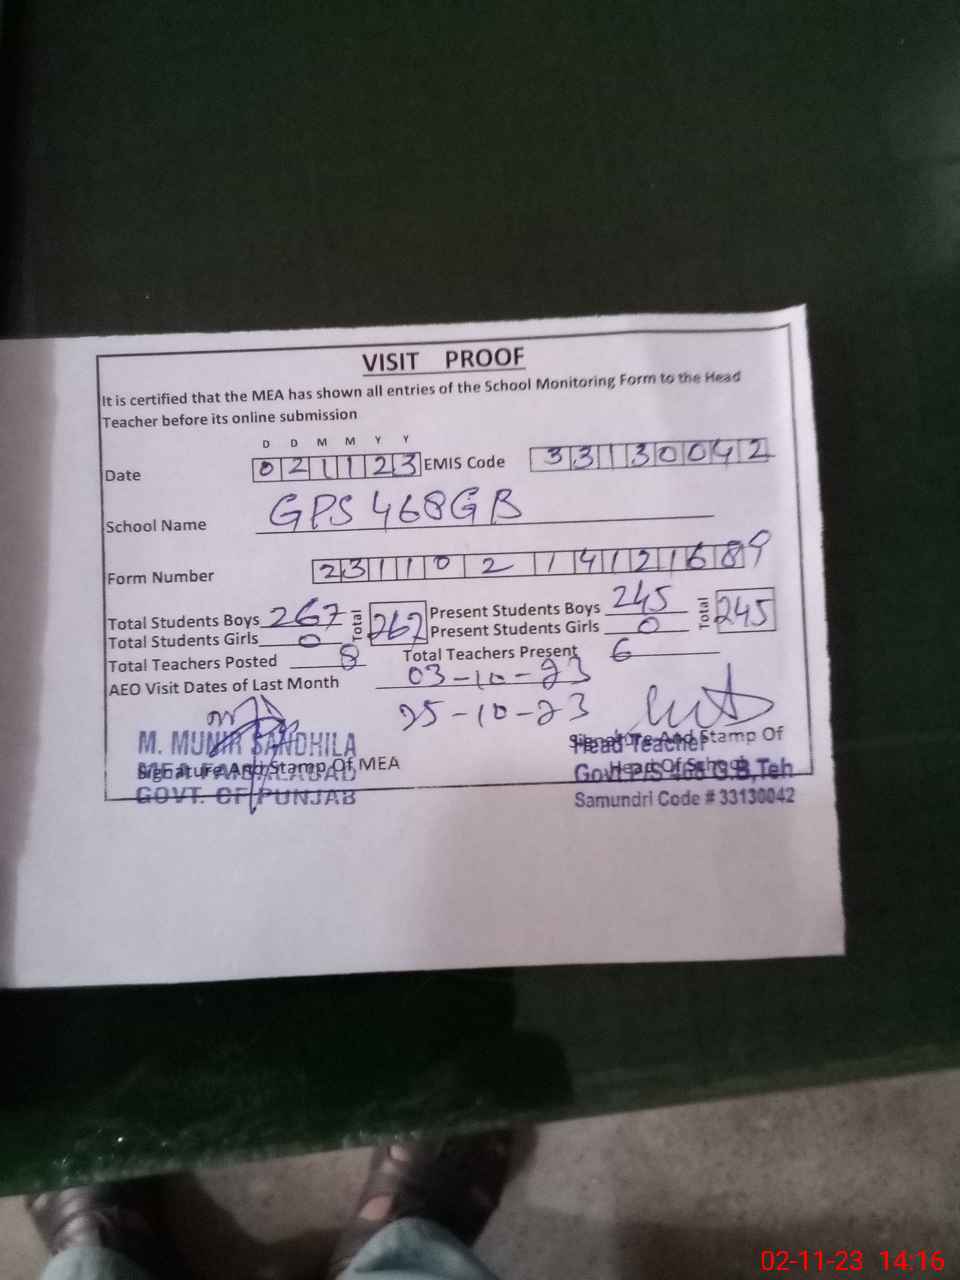 VISIT PROOF
It is certified that the MEA has shown all entries of the School Monitoring Form to the Head
Teacher before its online submission
D D M M Y Y
Date 021123 EMIS Code 33130042
School Name GPS 468GB
Form Number 23110214121689
Total Students Boys 267 Total 267 Present Students Boys 245 Total 245
Total Students Girls 0 Present Students Girls 0
Total Teachers Posted 8 Total Teachers Present 6
AEO Visit Dates of Last Month 03-10-23
25-10-23
M. MUNIR SANDHILA
Signature And Stamp Of MEA
MEA FAISALABAD
GOVT. OF PUNJAB
Signature And Stamp Of
Head Teacher
Head Of School
Govt P/S 468 G.B, Teh
Samundri Code # 33130042
02-11-23 14:16